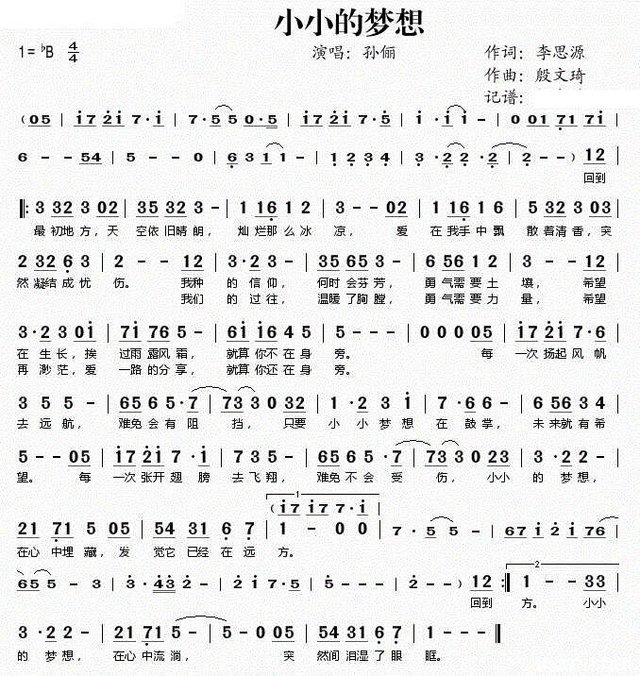 小小的梦想
1= ♭B 4/4 演唱：孙俪 作词：李思源
作曲：殷文琦
记谱：
( 05 | i7 2i 7·i | 7·5 5 0·5 | i7 2i 7·i | i·i i - | 0 01 71 7i |
6 - - 54 | 5 - - 0 | 6 3 1 1 - | 1 2 3 4 | 3·2 2·2 | 2 - - ) 12 |
回到
‖: 3 32 3 02 | 35 32 3 - | 1 16 1 2 | 3 - - 02 | 2 16 2 - | 5 32 3 03 |
最初地方，天 空依旧晴朗， 灿烂那么冰 凉， 爱 在我手中飘 散着清香，突
2 32 6 3 | 2 - - 12 | 3·2 3 - | 35 65 3 - | 6 56 1 2 | 3 - - 12 |
然凝结成忧 伤。 我种 的信仰， 何时会芬芳， 勇气需要土 壤， 希望
我们 的过往， 温暖了胸膛， 勇气需要力 量， 希望
3·2 3 0i | 7i 76 5 - | 6i 16 4 5 | 5 - - - | 0 0 0 05 | i7 2i 7·6 |
在生长，挨 过雨露风霜， 就算你不在身 旁。 每 一次扬起风帆
再渺茫，爱 一路的分享， 就算你还在身 旁。
3 5 5 - | 65 6 5·7 | 73 3 0 32 | 1·2 3 i | 7·6 6 - | 6 56 3 4 |
去远航， 难免会有阻 挡， 只要 小小梦想 在鼓掌， 未来就有希
5 - - 05 | i7 2i 7·i | 7·5 5 - | 65 6 5·7 | 73 3 0 23 | 4·3 3 - |
望。 每 一次张开翅膀 去飞翔， 难免不会受 伤， 小小 的梦想，
1
( i7 i7 7·i )
21 71 5 05 | 54 31 6 7 | 1 - 0 0 | 7·5 5 - | 67 i 2 i 76 |
在心中埋藏，发 觉它已经在远 方。
65 5 - 3 | 3·43 2 - | 2 1 7 5 | 5·1 1 2 | 2 - - ) 12 :‖ 1 - - 33 |
2
回到 方。 小小
3·2 2 - | 21 71 5 - | 5 - 0 05 | 54 31 6 7 | 1 - - - ‖
的梦想， 在心中流淌， 突 然间泪湿了眼 眶。